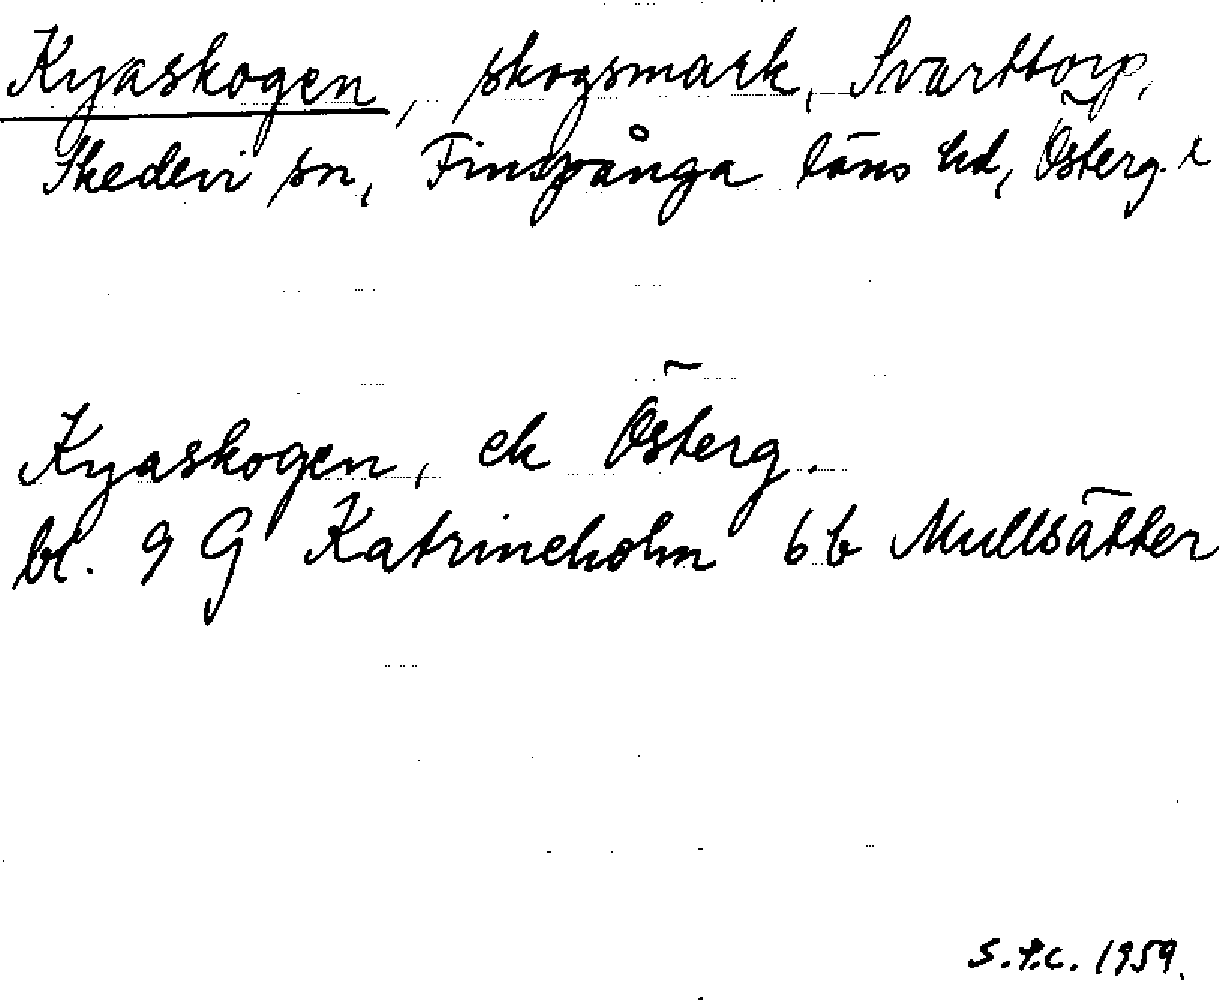 Kyaskogen, skogsmark, Svarttorp,
Skedevi sn, Finspånga läns hd, Österg. l
Kyaskogen, ek Österg.
bl. 9 G Katrineholm 6 b Mullsätter
S.P.C. 1959.